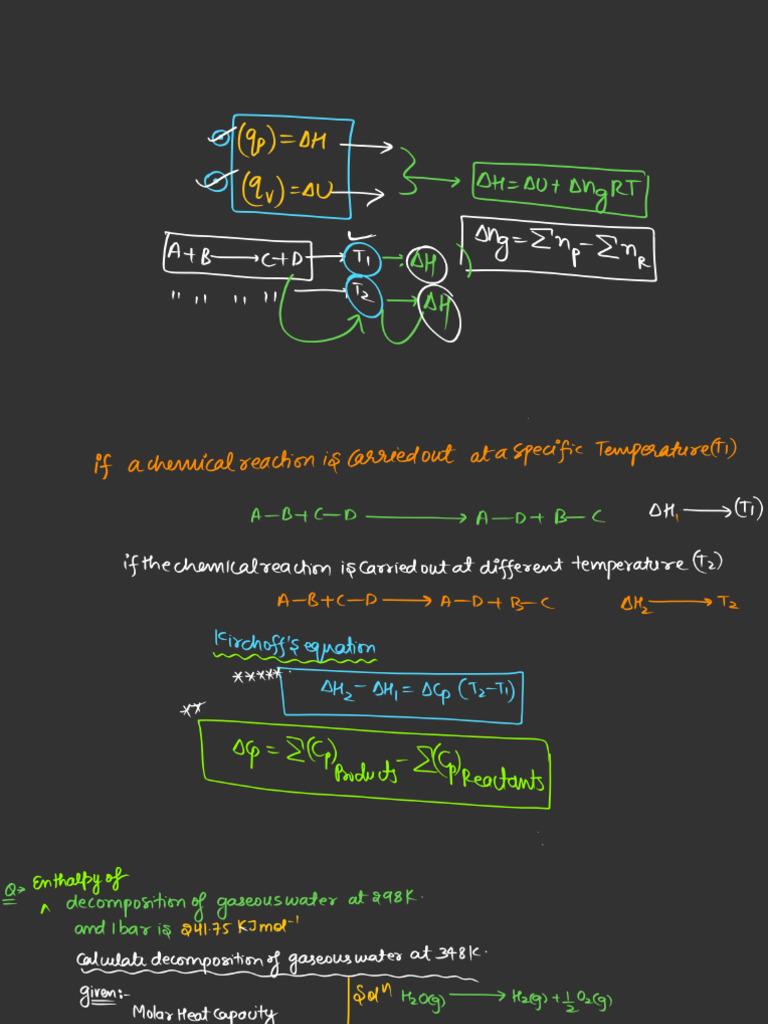 (qp) = ΔH
(qv) = ΔU
ΔH = ΔU + ΔngRT
Δng = Σnp - ΣnR
A+B → C+D → T1 → ΔH
" " " " → T2 → ΔH
if a chemical reaction is carried out at a specific Temperature (T1)
A-B + C-D → A-D + B-C ΔH1 → (T1)
if the chemical reaction is carried out at different temperature (T2)
A-B + C-D → A-D + B-C ΔH2 → T2
Kirchoff's equation
*****
ΔH2 - ΔH1 = ΔCp (T2-T1)
**
ΔCp = Σ(Cp)Products - Σ(Cp)Reactants
Q→ Enthalpy of
^ decomposition of gaseous water at 298K.
and 1 bar is 241.75 KJmol⁻¹
Calculate decomposition of gaseous water at 348K.
given:-
Molar Heat Capacity
Solⁿ H2O(g) → H2(g) + 1/2 O2(g)